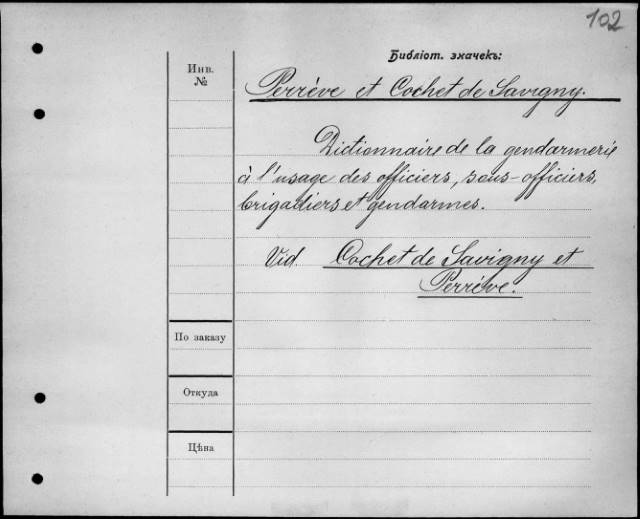 102
Библіот. значекъ:
Инв.
№
Perrève et Cochet de Savigny.
Dictionnaire de la gendarmerie
à l'usage des officiers, sous-officiers,
brigadiers et gendarmes.
Vid. Cochet de Savigny et
Perrève.
По заказу
Откуда
Цѣна